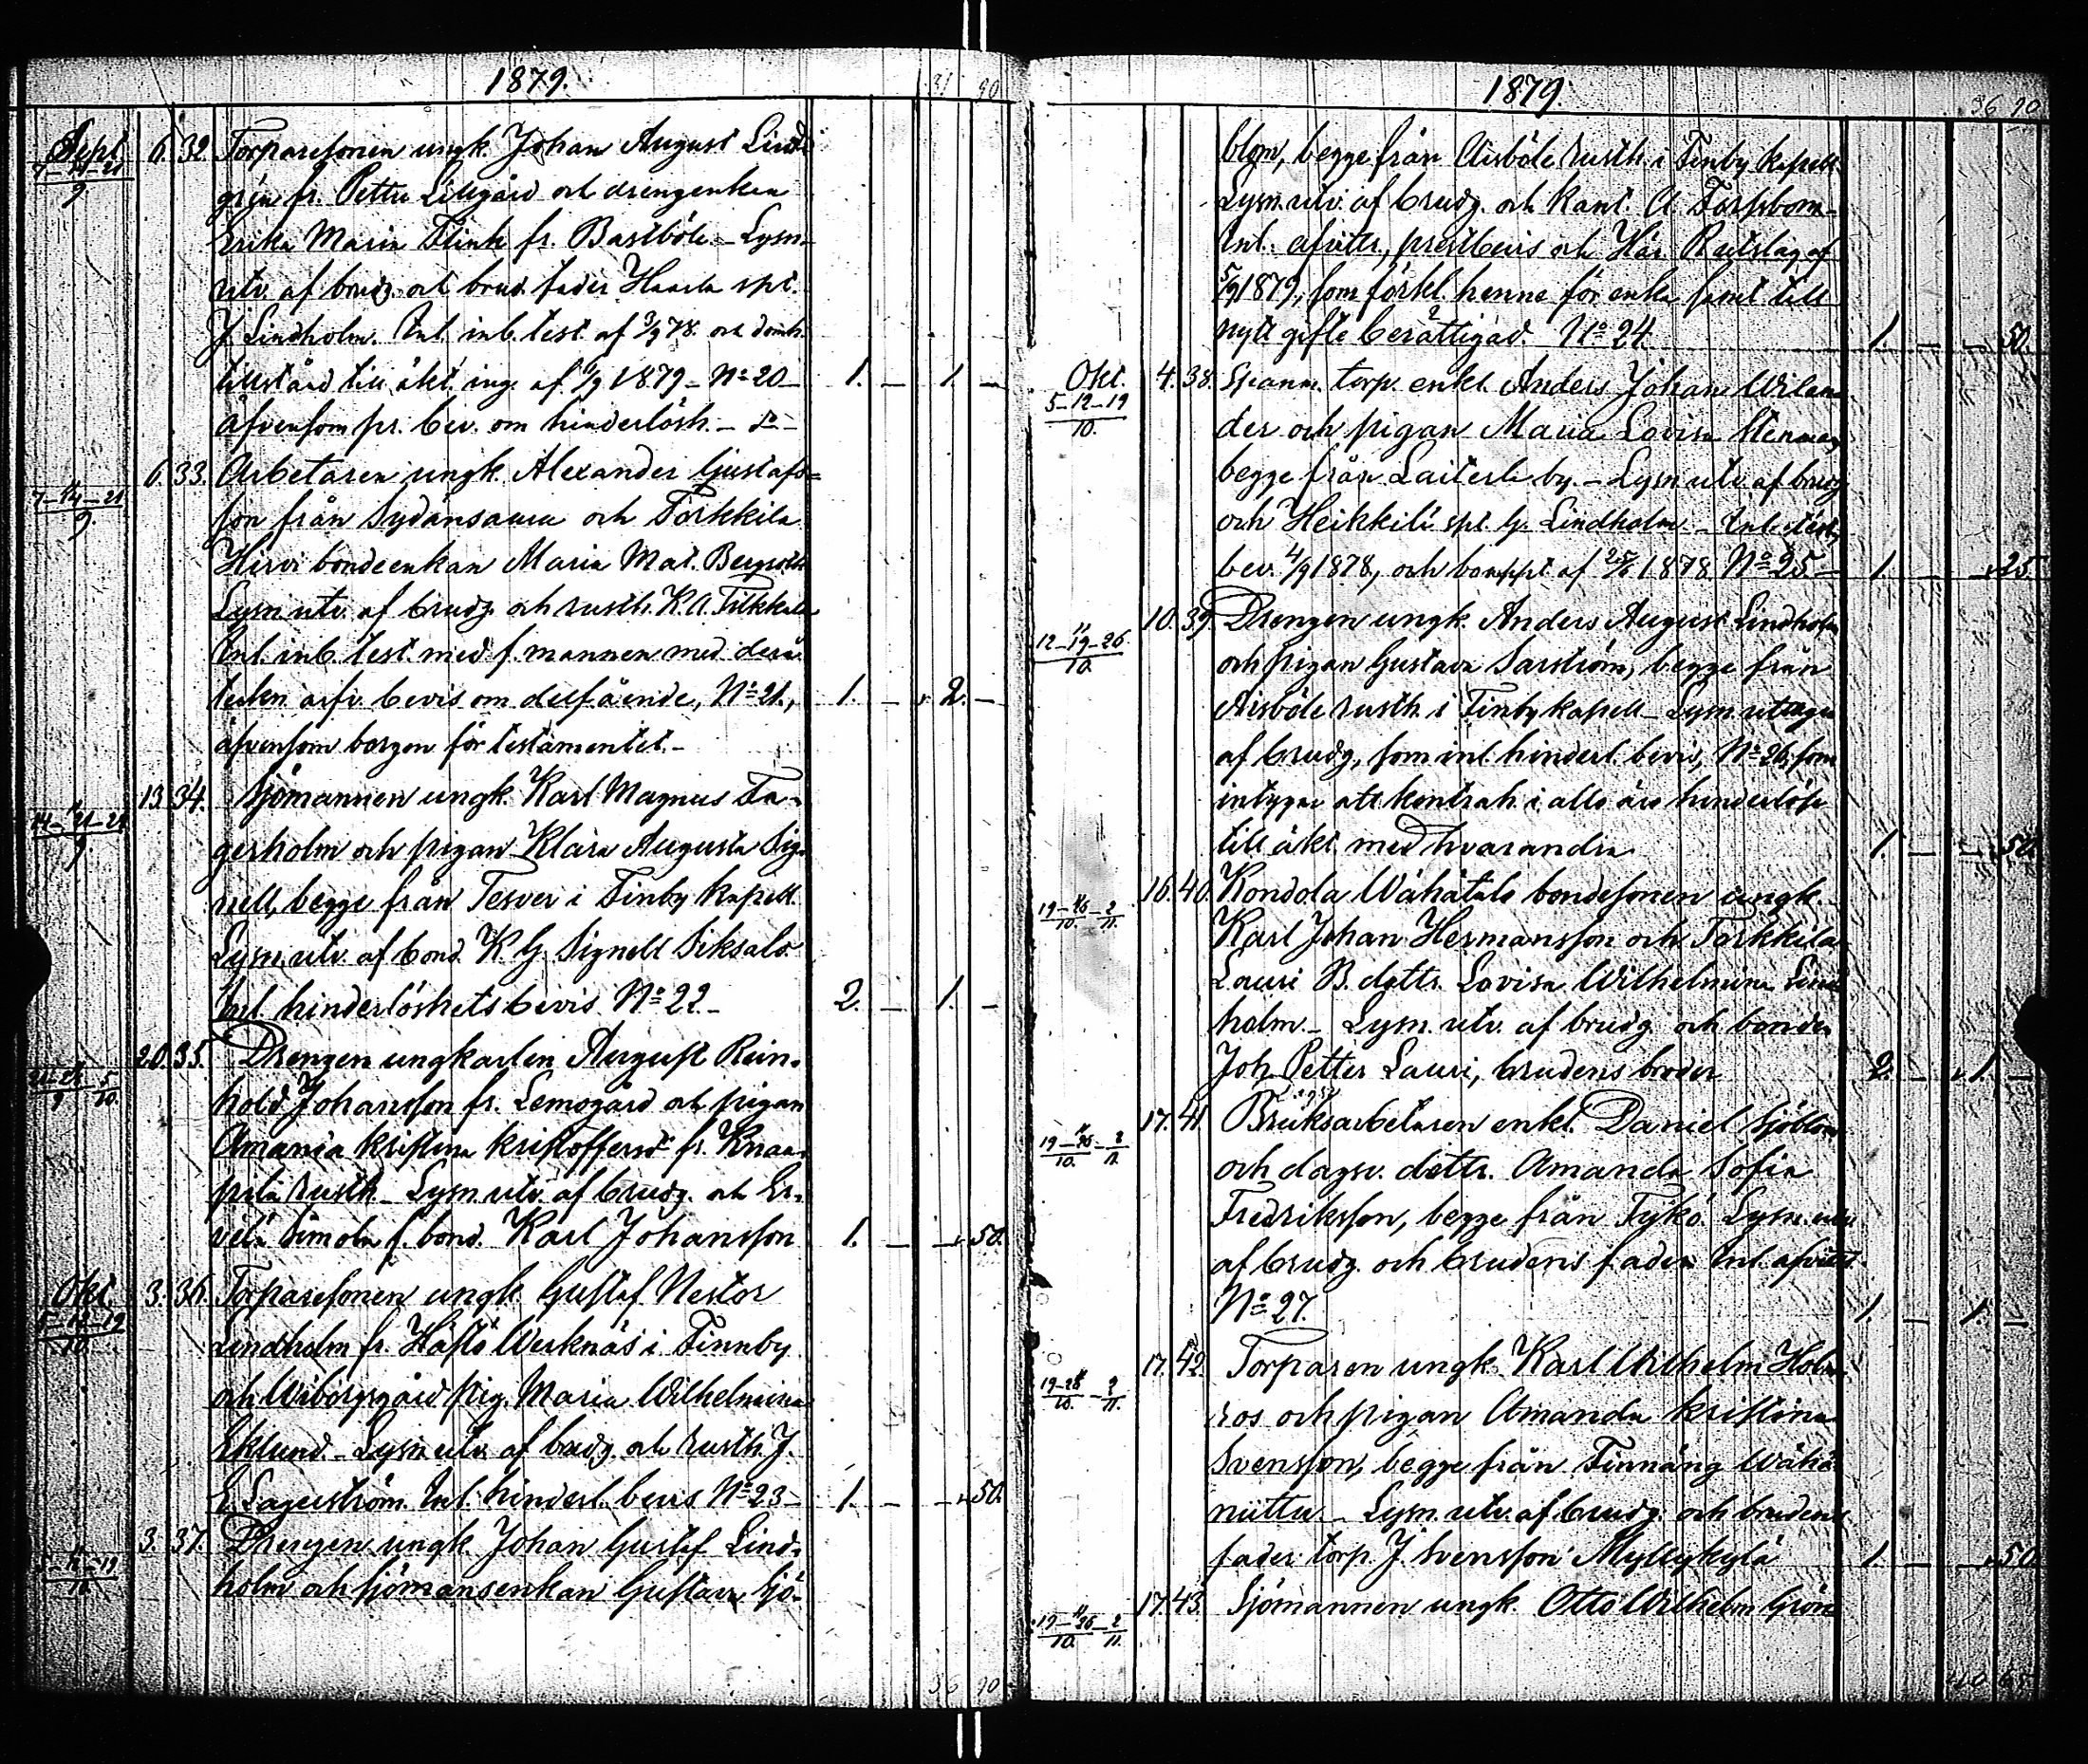 1879.
31 90
Sept. 6. 32. Torparesonen ungk. Johan August Lind-
7-14-21/9 gren fr. Pettu Lillgård och drengenkan
Erika Maria Flink fr. Bastböle. - Lysn.
utv. af brudg. och brud. fader Haarla spt.
J. Lindholm. Inl. inb. test. af 3/9 78. och domh.
tillstånd till äkt. ing. af 1879 - No 20 - 1. - 1. -
äfvensom pr. bev. om hinderlösh. - do -
6. 33. Arbetaren ungk. Alexander Gustafs-
7-14-21/9. son från Sydänsaura och Torkkila
Hirvi bondeenkan Maria Mat.
Lysn. utv. af brudg. och rusth. K. A.
Inl. inb. test. med f. mannen med
arfv. bevis om delfående, No 21., 1. - 2. -
äfvensom borgen för testamentet. -
13. 34. Sjömannen ungk. Karl Magnus Fa-
14-21-28/9 gerholm och pigan Klara Augusta Sig-
nell, begge från Tesver i Finby kapell.
Lysn. utv. af bond. K. G. Signell Siksalo.
Inl. hinderlöshetsbevis No 22 - 2. - 1. -
20. 35. Drengen ungkarlen August Rein-
21-28/9 - 5/10. hold Johansson fr. Lemogård och pigan
Amanda Kristina Kristoffersdr fr. Knaa-
pila rusth. - Lysn. utv. af brudg. och Er-
velä Simola f. bond. Karl Johansson 1. - - 50.
Okt. 3. 36. Torparesonen ungk. Gustaf Nestor
5-12-19/10. Lindholm fr. Häftö Werknäs i Finnby
och Wiborgsgård pig. Maria Wilhelmina
Eklund - Lysn. utv. af brudg. och rusth. J.
E. Lagerström. Inl. hinderl. bevis No 23 - 1. - - 50.
3. 37. Drengen ungk. Johan Gustaf Lind-
5-12-19/10 holm och sjömansenkan Gustava Sjö-
36 90
1879.
36 90
blom, begge från Aisböle rusth. i Finby kapell.
Lysn. utv. af brudg. och kant. A. Forsbom -
Inl. afvittr., prestbevis och Här. Rutslag af
5/9 1879, som förkl. henne för enka samt till
nytt gifte berättigad. No 24. 1. - - 50.
Okt. 4. 38. Spann. torp. enkl. Anders Johan Wilan-
5-12-19/10. der och pigan Maria Lovisa Stenman,
begge från Laiterla by. - Lysn. utv. af brudg.
och Heikkilä spt. G. Lindholm. - Inl.
bev. 4/9 1878, och bouppt. af 1878 No 25 - 1. - - 25.
10. 39. Drengen ungk. Anders August Lindholm
12-19-26/10. och pigan Gustava Sarström, begge från
Aisböle rusth. i Finby kapell - Lysn. uttagn.
af brudg., som inl. hinderl. bevis, No 26, som
intygar att kontrah. i allo äro hinderlöse
till äkt. med hvarandra 1. - - 50.
16. 40. Kondola Wähätalo bondesonen ungk.
19-26/10. - 2/11. Karl Johan Hermansson och Torkkila
Lauri B. dottr. Lovisa Wilhelmina Lind-
holm. - Lysn. utv. af brudg. och bonden
Joh. Petter Lauri, brudens broder 2. - 1. -
17. 41. Bruksarbetaren enkl. Daniel Sjöblom
19-26/10. - 2/11. och dagsv. dottr. Amanda Sofia
Fredriksson, begge från Tykö. Lysn. utv.
af brudg. och brudens fader. Inl. afvittr.
No 27. 1. - 1. -
17. 42. Torparen ungk. Karl Wilhelm Holm-
19-26/10. - 2/11. ros och pigan Amanda Kristina
Svensson, begge från Finnäng Wähä-
niittu. - Lysn. utv. af brudg. och brudens
fader torp. J. Svensson Myllykylä 1. - - 50.
17. 43. Sjömannen ungk. Otto Wilhelm Grön-
19-26/10. - 2/11.